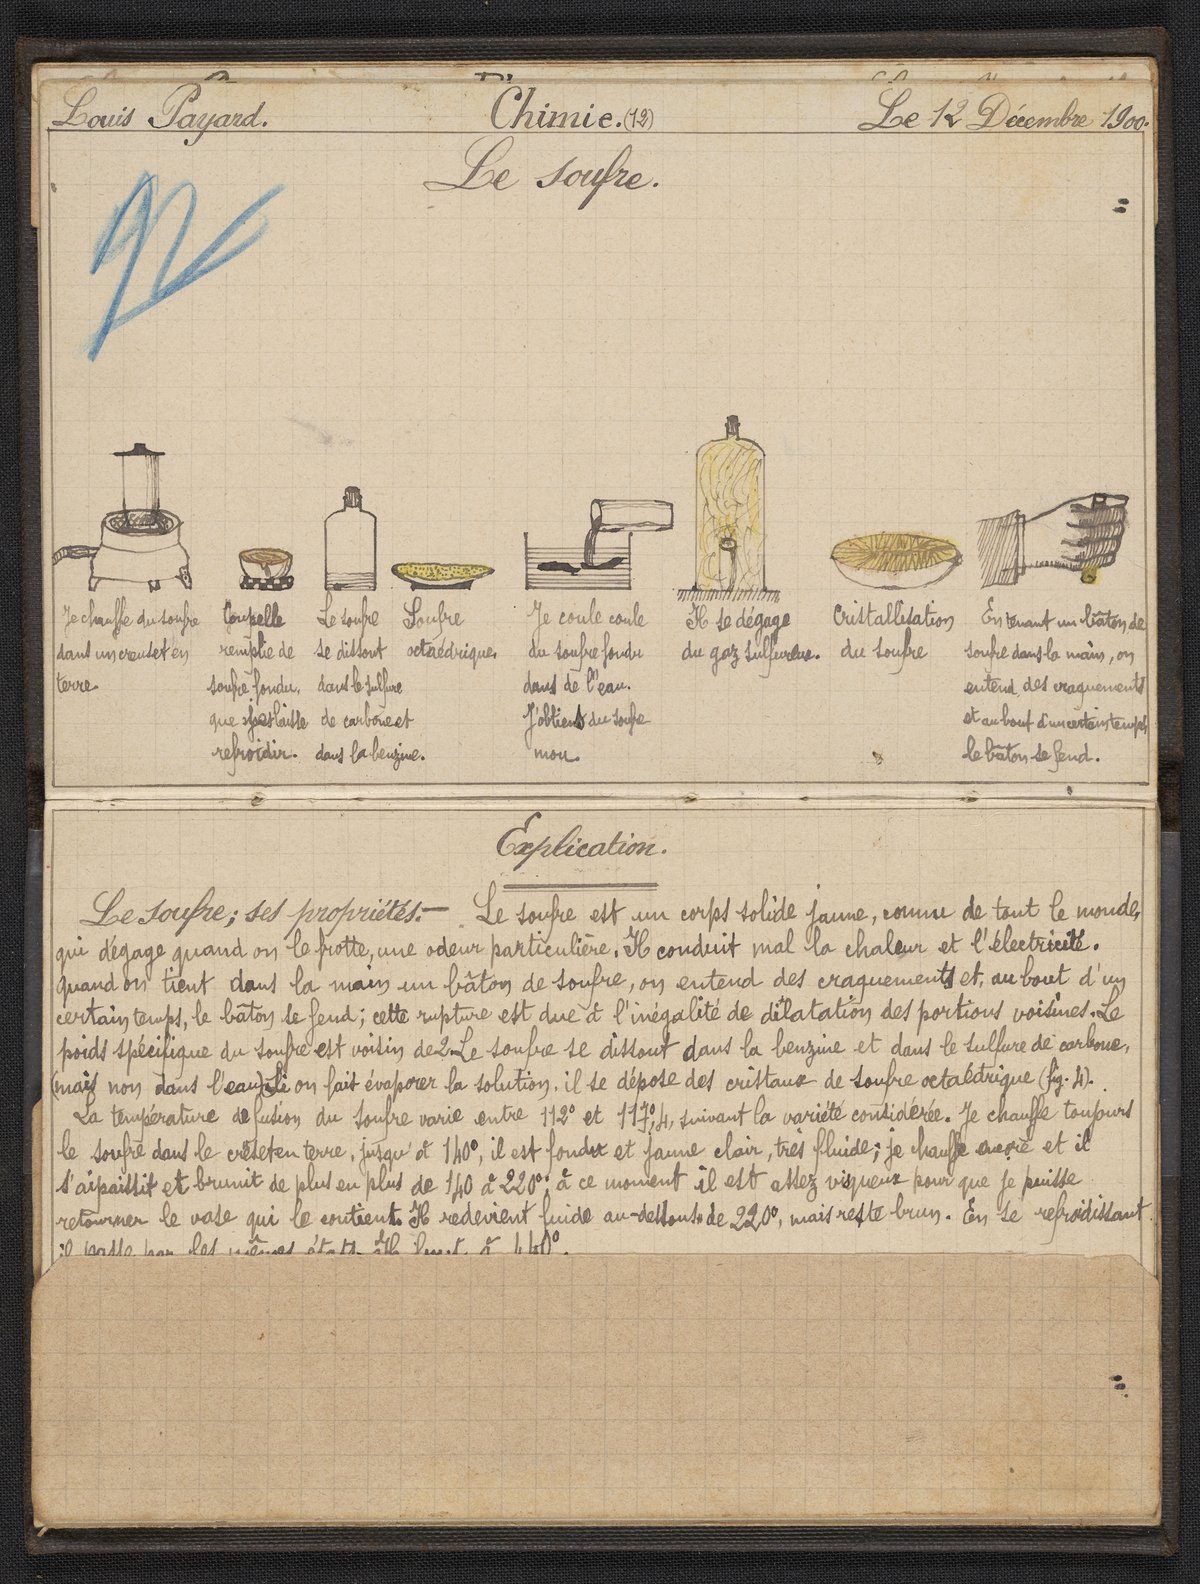 Louis Payard.
Chimie.(12)
Le 12 Décembre 1900.
Le soufre.
Je chauffe du soufre
dans un creuset en
terre.
Coupelle
remplie de
soufre fondu.
que je laisse
refroidir.
Le soufre
se dissout
dans le sulfure
de carbone et
dans la benzine.
Soufre
octaédrique.
Je coule coule
du soufre fondu
dans de l'eau.
J'obtiens du soufre
mou.
Il se dégage
du gaz sulfureux.
Cristallisation
du soufre
En tenant un bâton de
soufre dans la main, on
entend des craquements
et au bout d'un certain temps
le bâton se fend.
Explication.
Le soufre; ses propriétés.— Le soufre est un corps solide jaune, connu de tout le monde,
qui dégage quand on le frotte, une odeur particulière. Il conduit mal la chaleur et l'électricité.
Quand on tient dans la main un bâton de soufre, on entend des craquements et, au bout d'un
certain temps, le bâton se fend; cette rupture est due à l'inégalité de dilatation des portions voisines. Le
poids spécifique du soufre est voisin de 2. Le soufre se dissout dans la benzine et dans le sulfure de carbone,
(mais non dans l'eau). Si on fait évaporer la solution, il se dépose des cristaux de soufre octaédrique (fig. 4).
La température de fusion du soufre varie entre 112° et 117°,4, suivant la variété considérée. Je chauffe toujours
le soufre dans le creset en terre, jusqu'à 140°, il est fondu et jaune clair, très fluide; je chauffe encore et il
s'aipaissit et brunit de plus en plus de 140 à 220°; à ce moment il est assez visqueux pour que je puisse
retourner le vase qui le contient. Il redevient fuide au-dessous de 220°, mais reste brun. En se refroidissant
il passe par les mêmes états. Il bout à 440°.